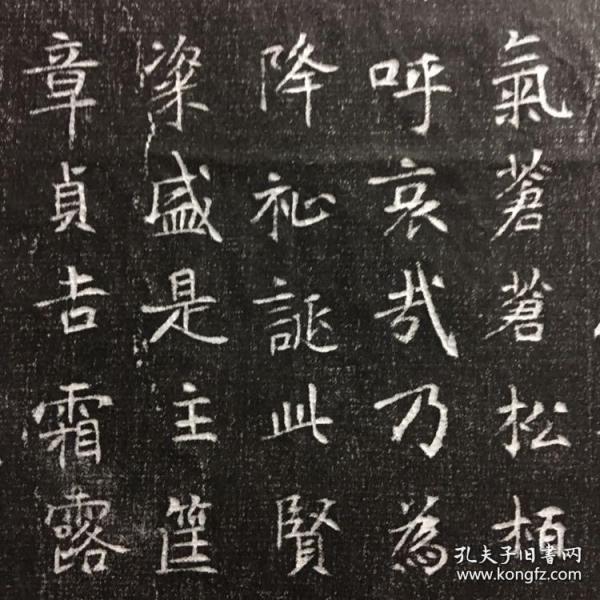 氣蒼蒼松栢
呼哀哉乃為
降祉誕此賢
粢盛是主筐
章貞吉霜露
孔夫子旧書网
www.kongfz.com